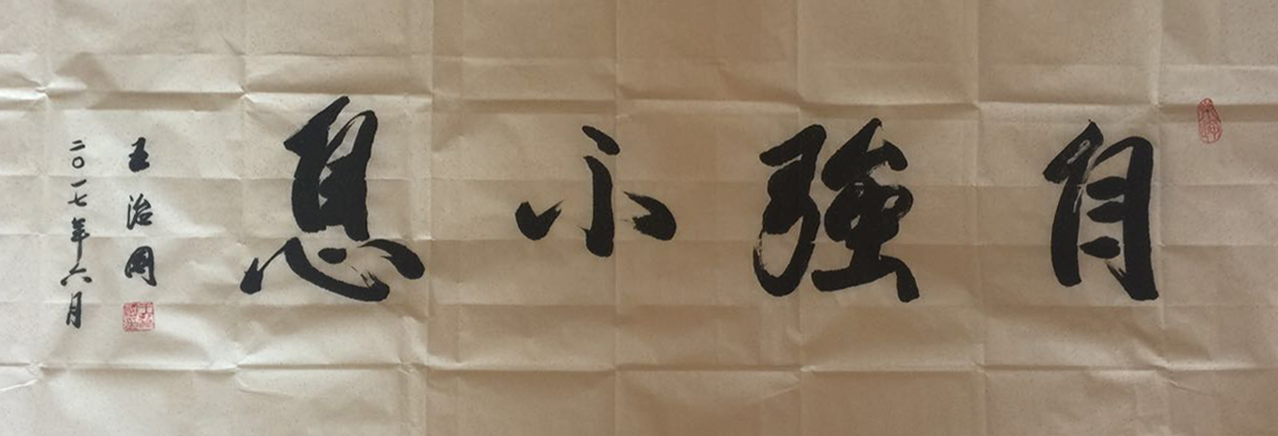 自強不息
王治国
二〇一七年六月